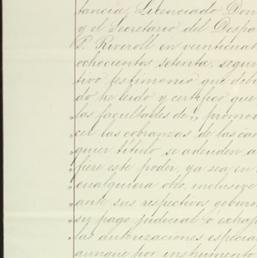 tancia, Licenciado Don
y el Secretario del Despa
P. Riveroll en veinticuat
ochocientos setenta, segun
tivo testimonio que debi
do he leido y certifico que
las facultades de promo
cer las cobranzas de las can
quier título se adeuden a
fiere este poder, ya sea en
cualquiera otro, inclusive
ante sus respectivos gobiern
su pago judicial ó estraj
las autorizaciones especia
aunque por instrumento